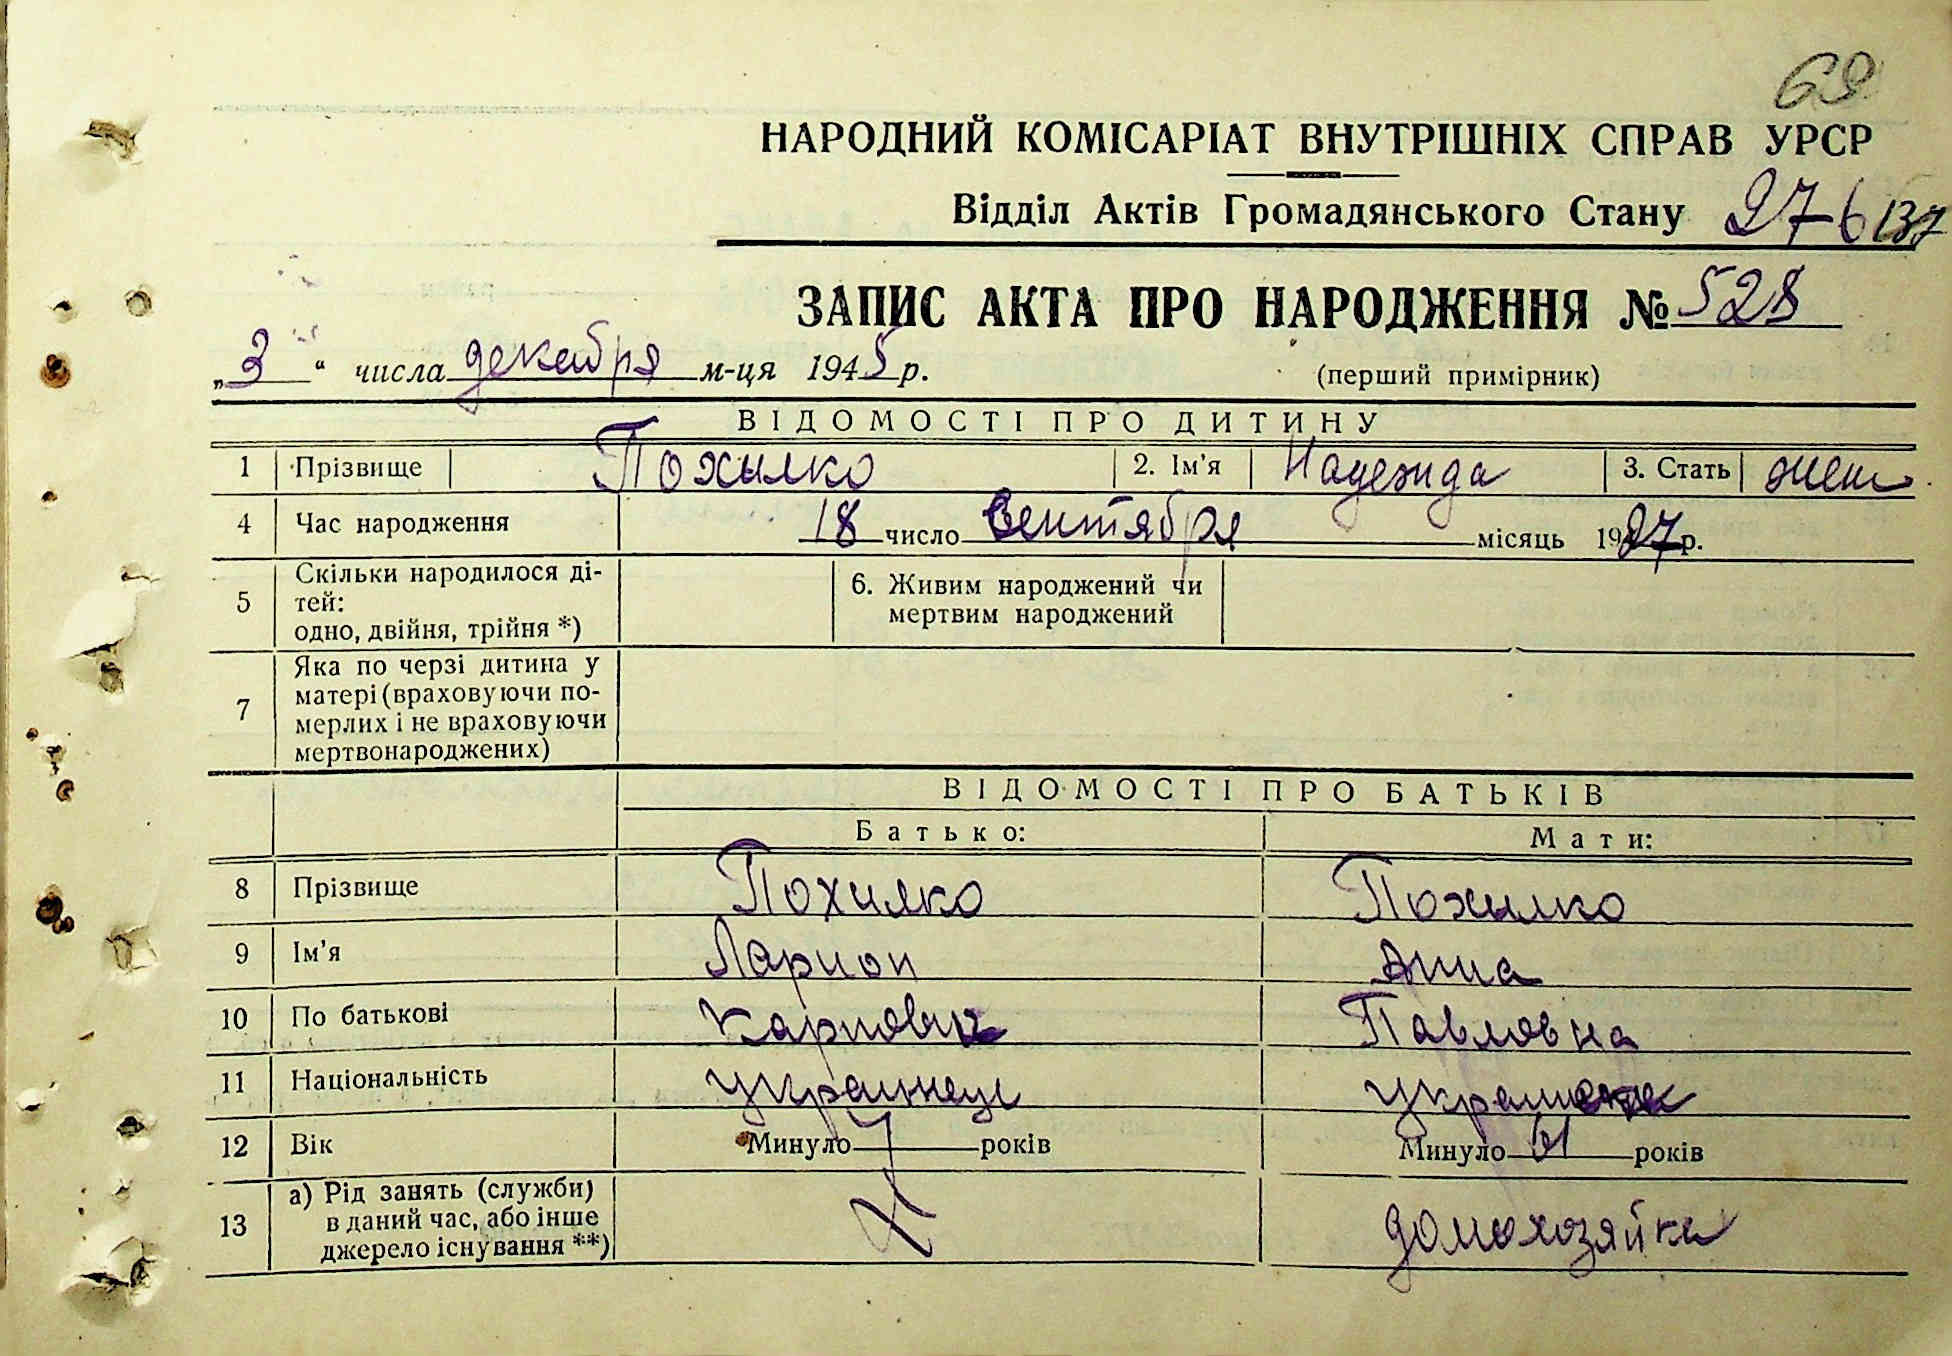 69
НАРОДНИЙ КОМІСАРІАТ ВНУТРІШНІХ СПРАВ УРСР
Відділ Актів Громадянського Стану 276 137
ЗАПИС АКТА ПРО НАРОДЖЕННЯ № 528
„3“ числа декабря м-ця 1945 р.
(перший примірник)
ВІДОМОСТІ ПРО ДИТИНУ
1 Прізвище Похилко 2. Ім'я Надежда 3. Стать жен
4 Час народження 18 число Сентября місяць 1927 р.
5 Скільки народилося ді-
тей:
одно, двійня, трійня *)
6. Живим народжений чи
мертвим народжений
7 Яка по черзі дитина у
матері (враховуючи по-
мерлих і не враховуючи
мертвонароджених)
ВІДОМОСТІ ПРО БАТЬКІВ
Батько: Мати:
8 Прізвище Похилко Похилко
9 Ім'я Ларион Анна
10 По батькові Карпович Павловна
11 Національність украинец украинка
12 Вік Минуло років Минуло 61 років
13 а) Рід занять (служби)
в даний час, або інше
джерело існування **)
домохозяйка